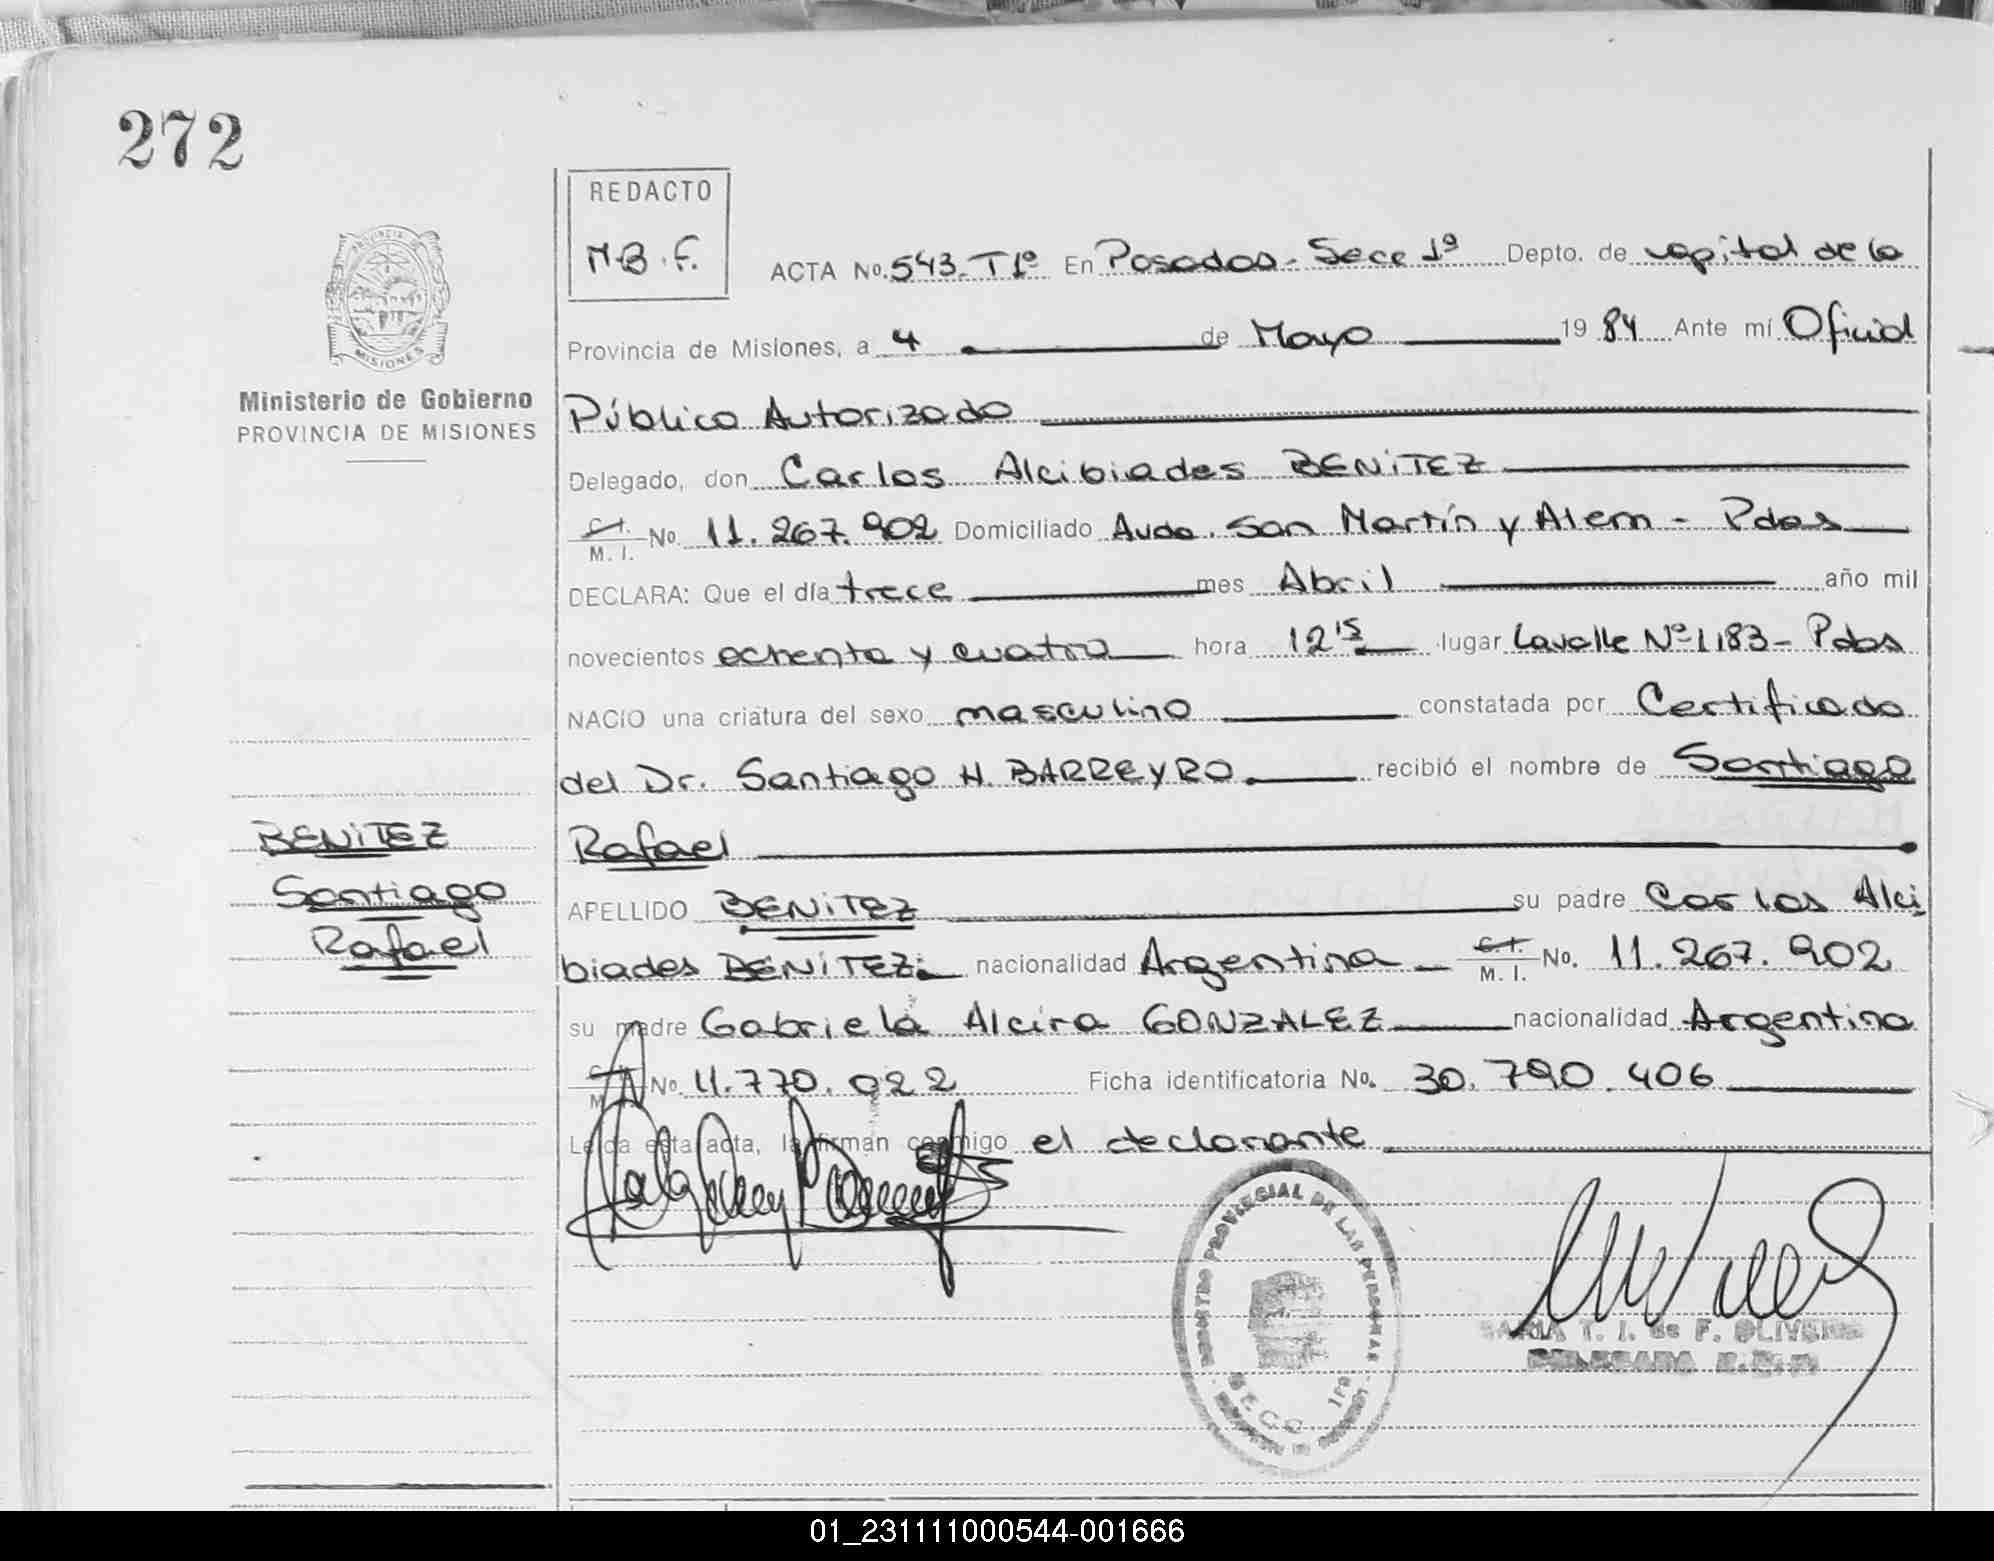 272
REDACTO
M.B.F.
ACTA No. 543. T 1º En Posadas - Secc 1ª Depto. de capital de la
Provincia de Misiones, a 4 de Mayo 19 84 Ante mí Oficial
Ministerio de Gobierno
PROVINCIA DE MISIONES
Público Autorizado
Delegado, don Carlos Alcibiades BENITEZ
C.I.
M. I. No. 11.267.902 Domiciliado Avda. San Martín y Alem - Pdas
DECLARA: Que el día trece mes Abril año mil
novecientos ochenta y cuatro hora 12 15 lugar Lavalle Nº 1183 - Pdas
NACIO una criatura del sexo masculino constatada por Certificado
del Dr. Santiago H. BARREYRO. recibió el nombre de Santiago
Rafael
BENITEZ
Santiago
Rafael
APELLIDO BENITEZ su padre Carlos Alci
biades BENITEZ. nacionalidad Argentina C.I.
M. I. No. 11.267.902
su madre Gabriela Alcira GONZALEZ nacionalidad Argentina
No. 11.770.922 Ficha identificatoria No. 30.790.406
Leída esta acta, la firman conmigo el declarante
PROVINCIA
MISIONES
REGISTRO PROVINCIAL DE LAS PERSONAS
SECC 1ra
MARIA T. I. de F. OLIVERA
DELEGADA R.P.P.
01_231111000544-001666